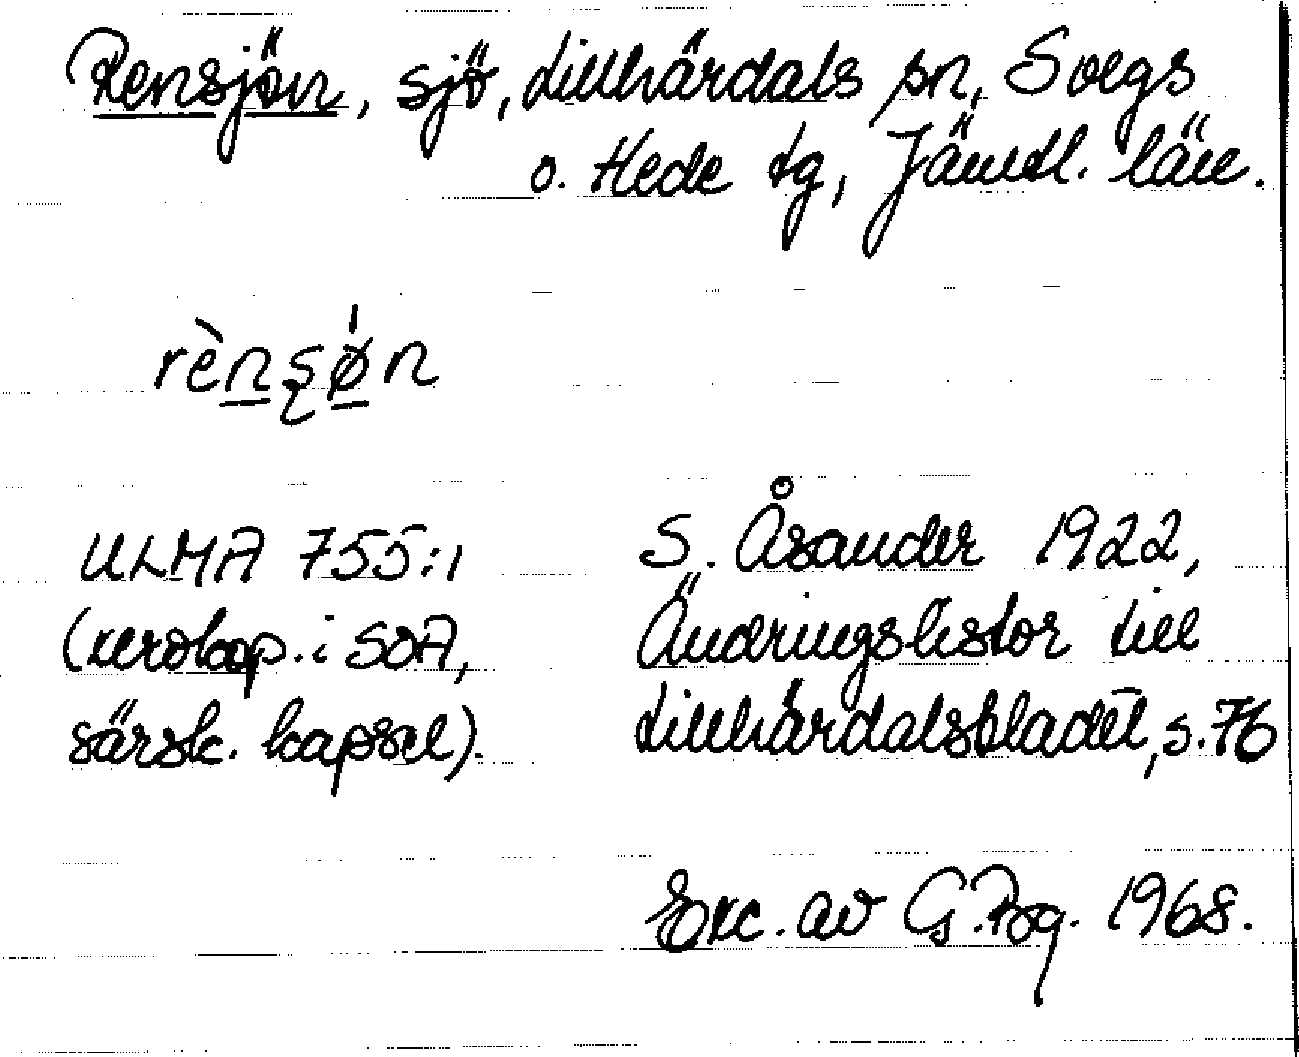 Rensjön, sjö, Lillhärdals sn, Svegs
o. Hede tg, Jämtl. län.
rènsø̀n
ULMA 755:1
(xerokop. i SOA,
särsk. kapsel).
S. Åsander 1922,
Ändringslistor till
Lillhärdalsbladet, s. 76
Exc. av G. Bg. 1968.